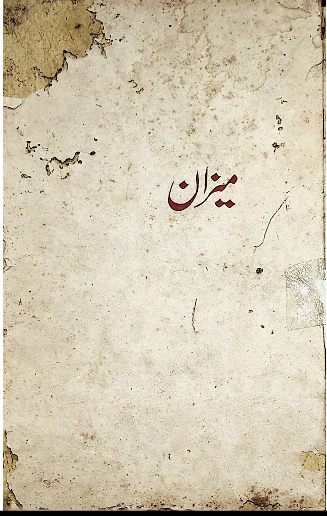 میزان